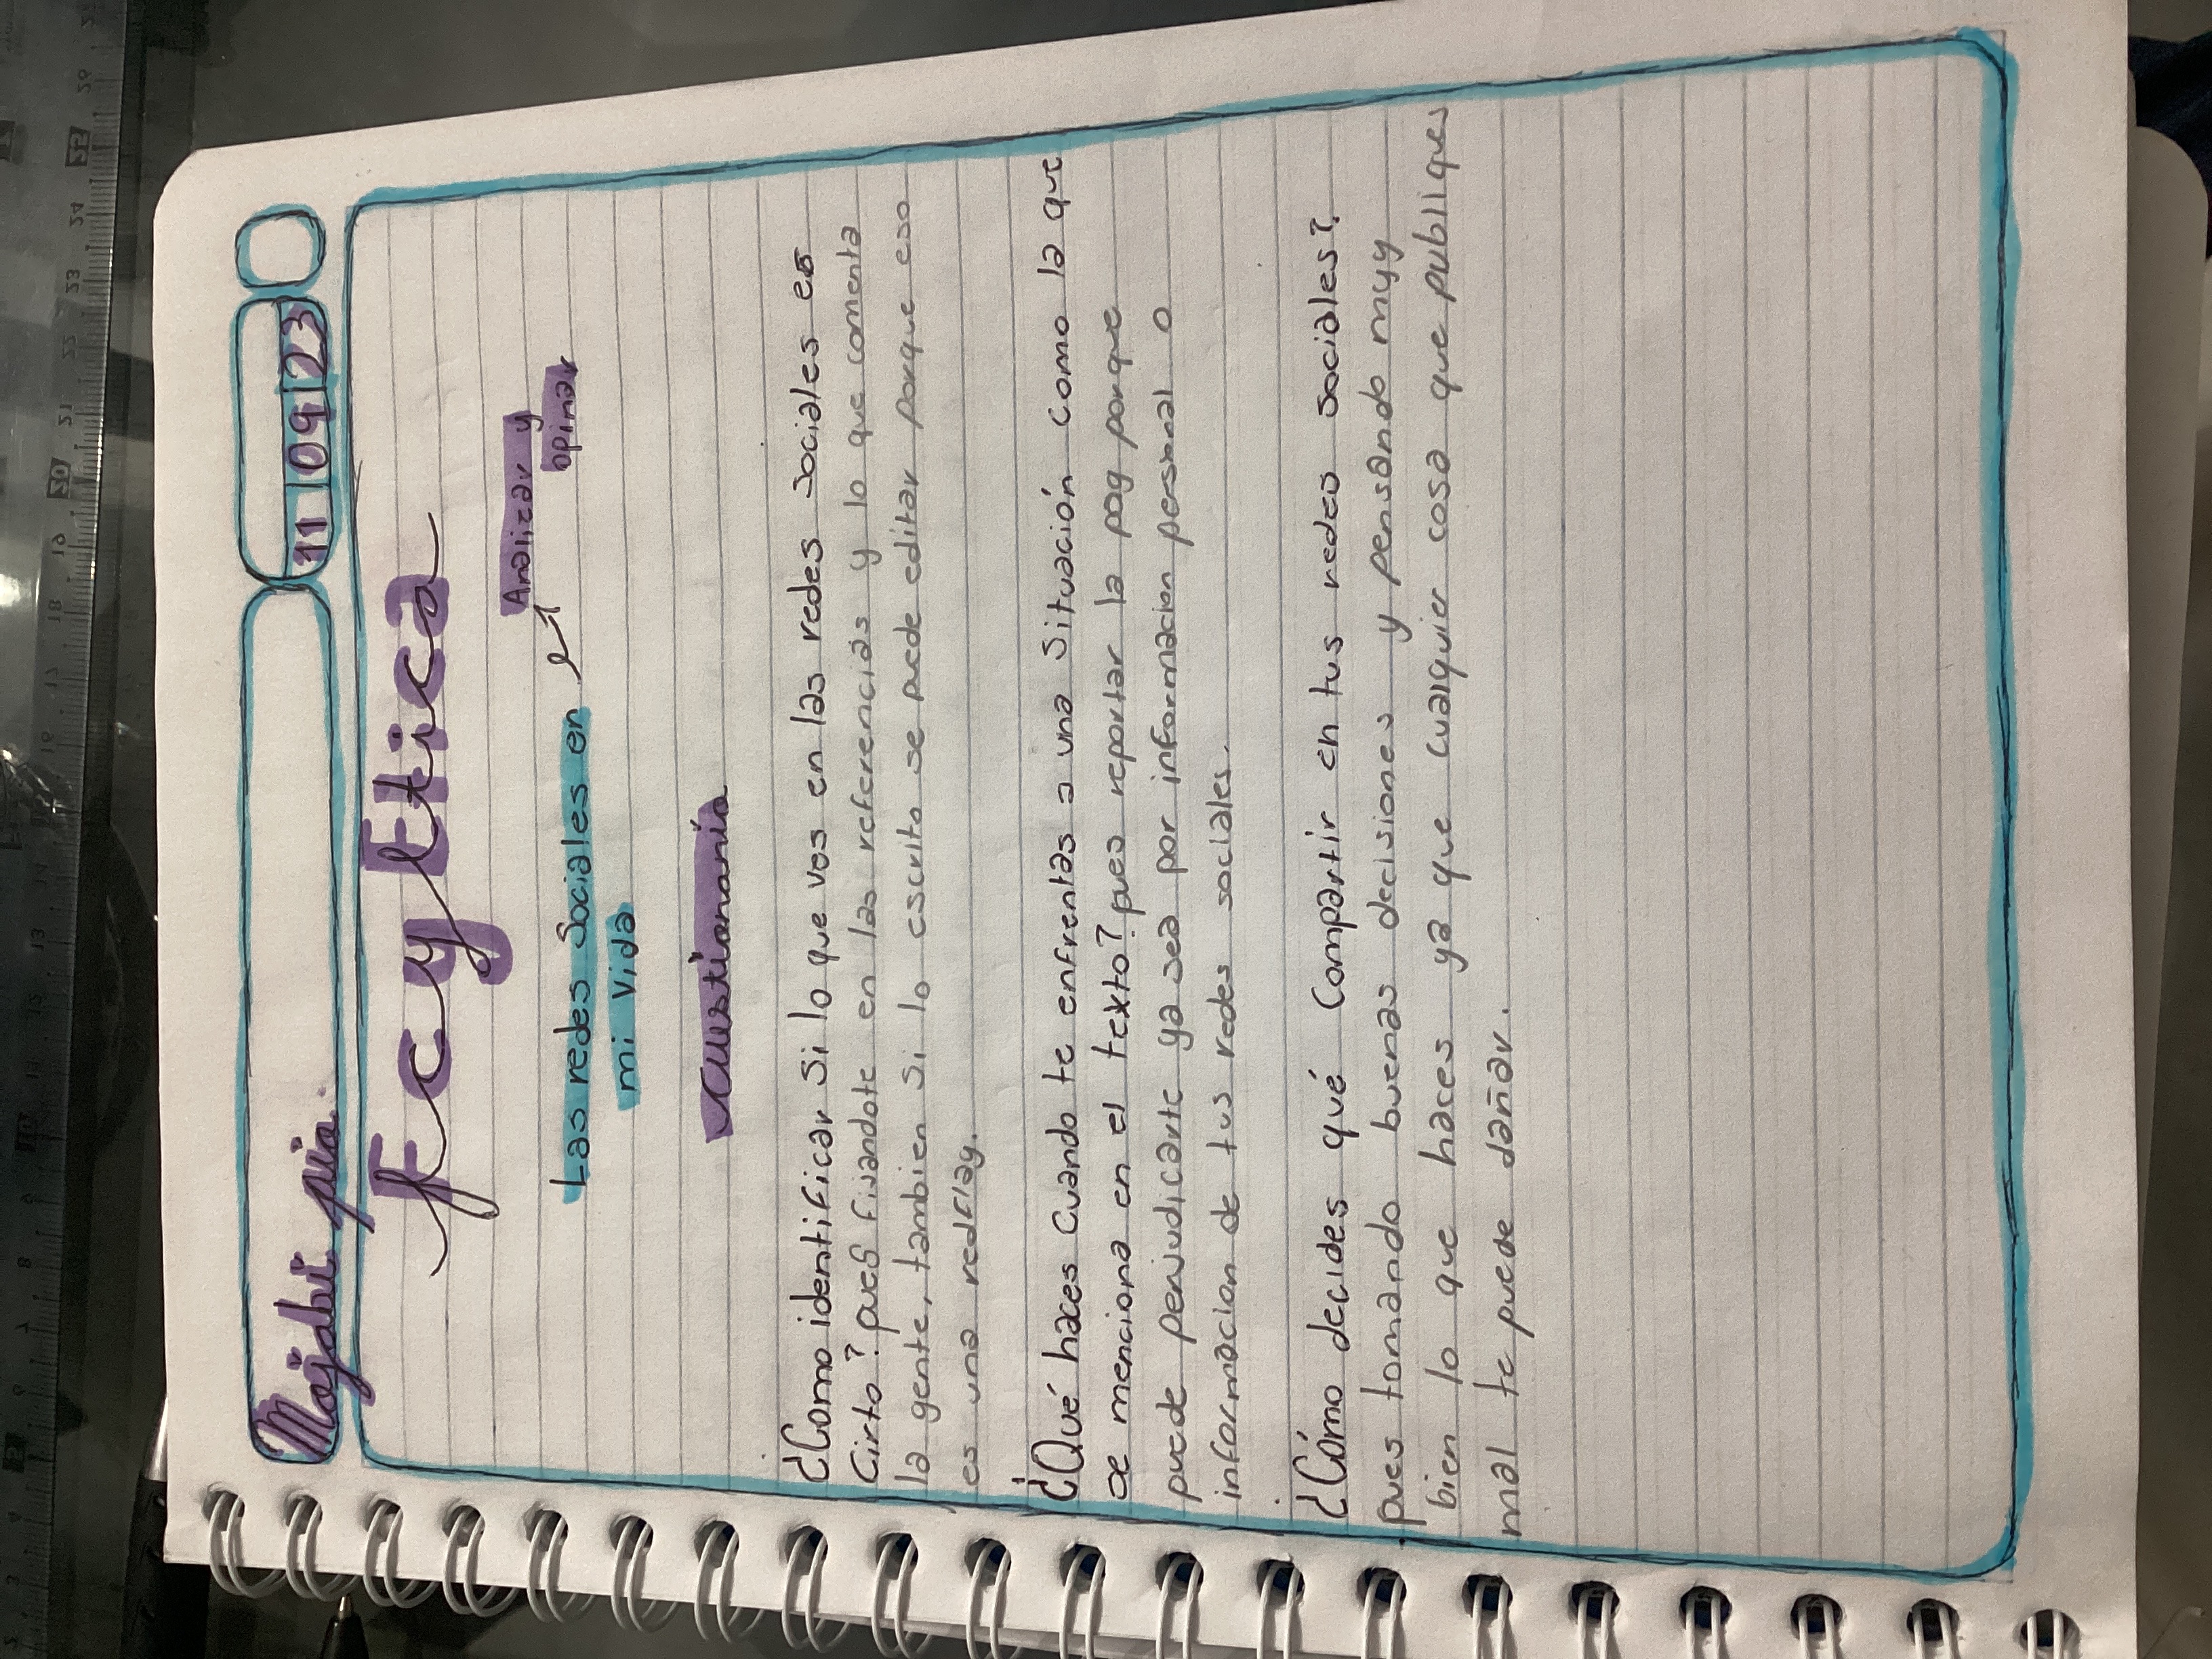 Majabi pia.
11 09 23
F c y Etica
Analizar y
opinar
Las redes Sociales en
mi vida
Cuestionario
¿Como identificar Si lo que ves en las redes sociales es
Cirto? pues fijandote en las referencias y lo que comenta
la gente, tambien si lo escrito se puede editar porque eso
es una redflag.
¿Qué haces cuando te enfrentas a una situación como la que
se menciona en el texto? pues reportar la pag porque
puede perjudicarte ya sea por informacion personal o
informacion de tus redes sociales.
¿Cómo decides qué compartir en tus redes sociales?
pues tomando buenas decisiones y pensando muy
bien lo que haces ya que cualquier cosa que publiques
mal te puede dañar.